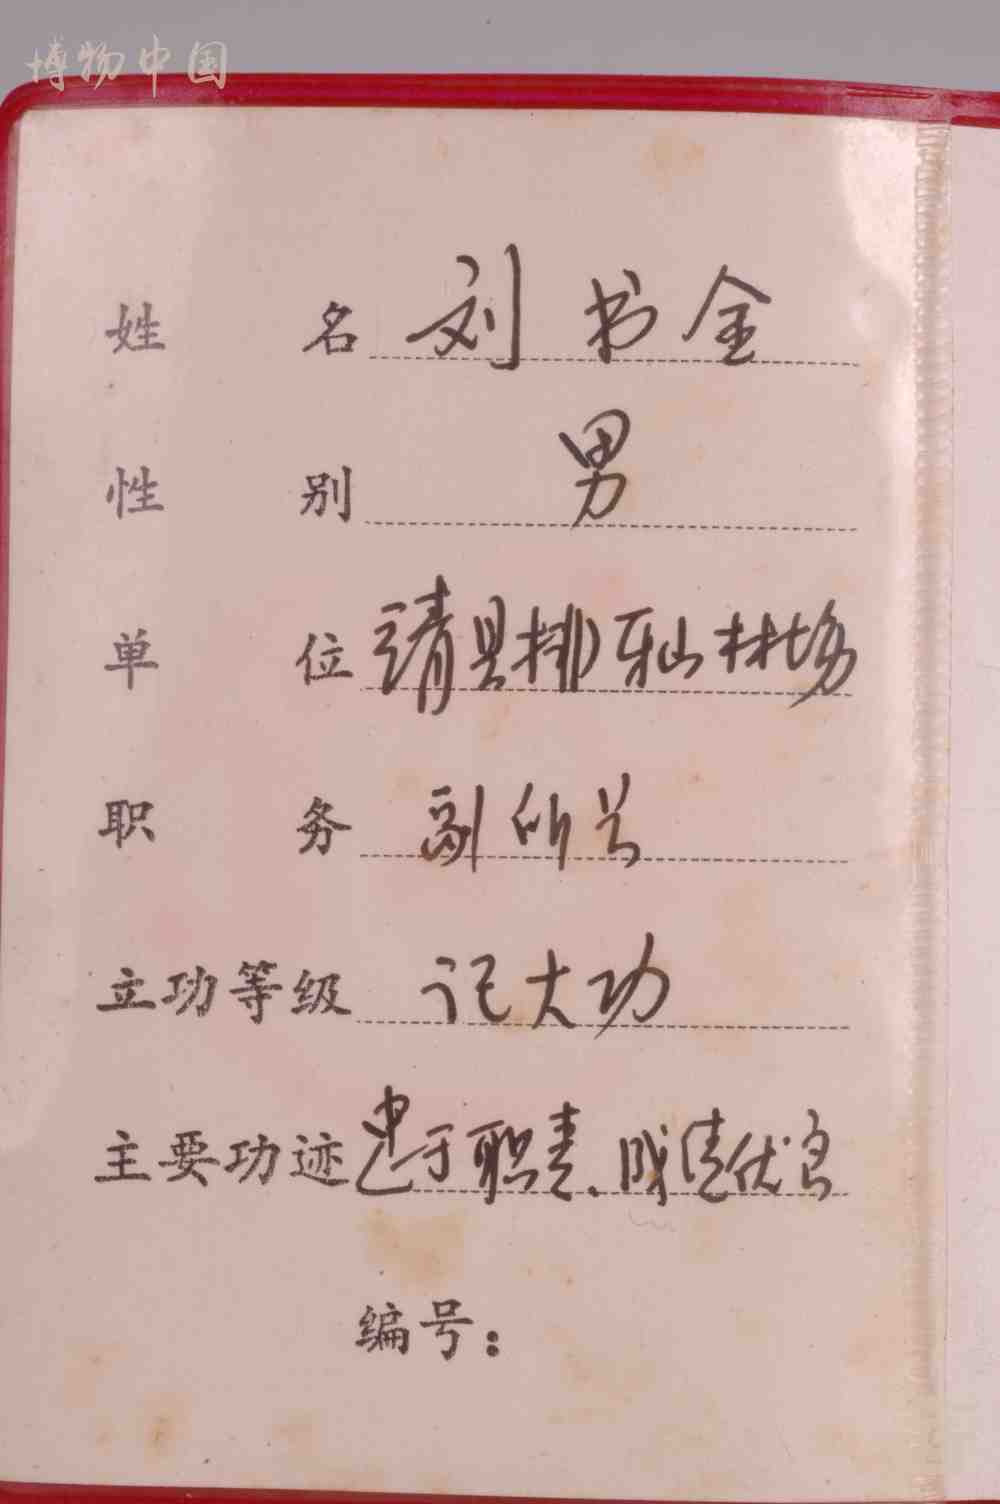 博物中国
姓 名 刘书金
性 别 男
单 位 靖县排牙山林场
职 务 副所长
立功等级 记大功
主要功迹 忠于职责、成绩优良
编号：